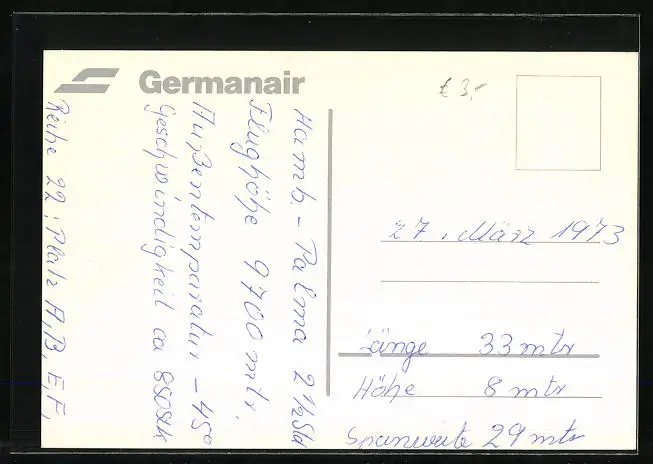 Germanair
€ 3,-
Hamb. - Palma 2 1/2 Std
Flughöhe 9700 mtr,
Außentemparatur - 45°
Geschwindigkeit ca 850 Stk
Reihe 22; Platz A, B, E, F,
27. März 1973
Länge 33 mtr
Höhe 8 mtr
Spanweite 29 mtr